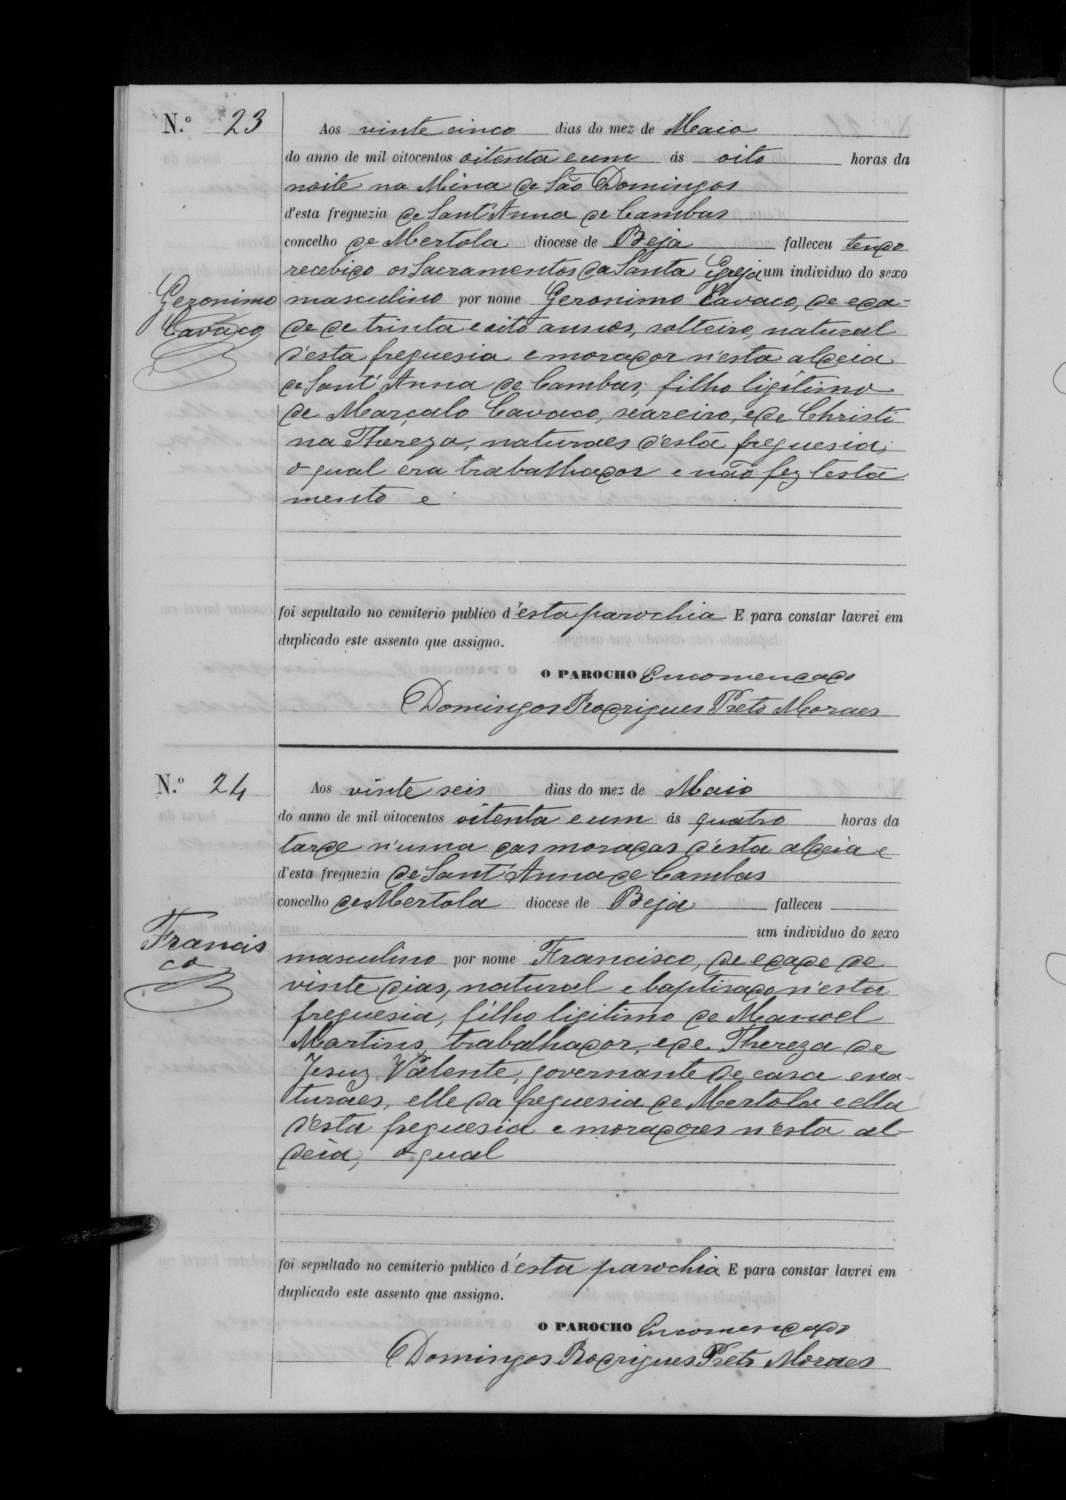 N.º 23
Aos vinte cinco dias do mez de Maio
do anno de mil oitocentos oitenta e um ás oito horas da
noite na Mina de São Domingos
d'esta freguezia de Sant'Anna de Cambas
concelho de Mertola diocese de Beja falleceu tendo
recebido os Sacramentos da Santa Egreja um individuo do sexo
Geronimo
Cavaco
masculino por nome Geronimo Cavaco, de eda-
de de trinta e oito annos, solteiro, natural
d'esta freguesia e morador n'esta aldeia
de Sant'Anna de Cambas, filho ligitimo
de Marçalo Cavaco, seareiro, e de Christi
na Thereza, naturaes d'esta freguesia,
o qual era trabalhador e não fez testa
mento e
foi sepultado no cemiterio publico d'esta parochia E para constar lavrei em
duplicado este assento que assigno.
O PAROCHO Encomendado
Domingos Rodrigues Preto Moraes
N.º 24
Aos vinte seis dias do mez de Maio
do anno de mil oitocentos oitenta e um ás quatro horas da
tarde n'uma das moradas d'esta aldeia e
d'esta freguezia de Sant'Anna de Cambas
concelho de Mertola diocese de Beja falleceu
um individuo do sexo
Francis
co
masculino por nome Francisco, de edade de
vinte dias, natural e baptisado n'esta
freguesia, filho ligitimo de Manoel
Martins, trabalhador, e de Thereza de
Jesuz Valente, governante de casa e na-
turaes, elle da freguesia de Mertola e ella
d'esta freguesia e moradores n'esta al-
deia, o qual
foi sepultado no cemiterio publico d'esta parochia E para constar lavrei em
duplicado este assento que assigno.
O PAROCHO Encomendado
Domingos Rodrigues Preto Moraes